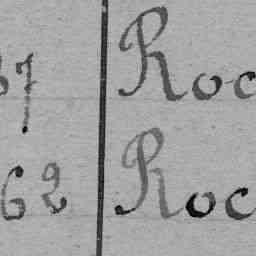 37 Roc
62 Roc